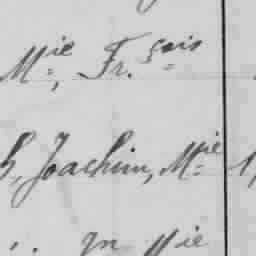 Mie, Fr.çois
h, Joachim, Mie
Mie